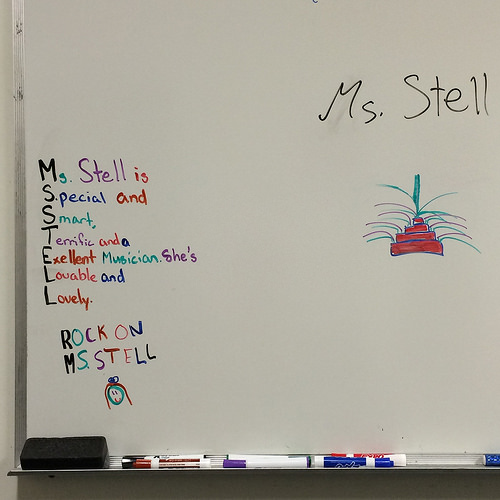 Ms. Stell
Ms. Stell is
S.pecial and
Smart,
Terrific and a
Exellent Musician. She's
Lovable and
Lovely.
ROCK ON
MS. STELL